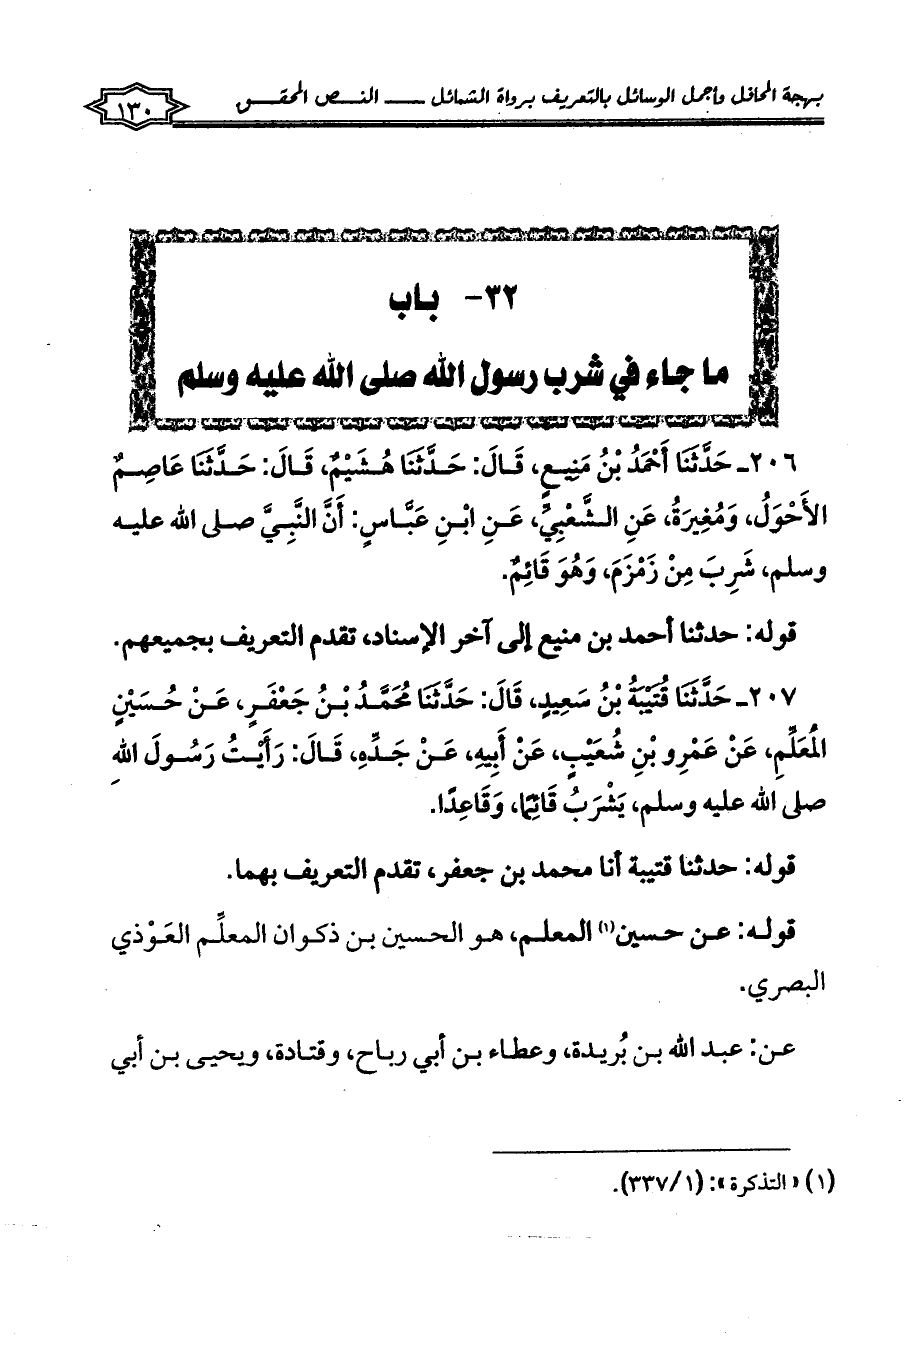 بهجة المحافل وأجمل الوسائل بالتعريف برواة الشمائل ــــ النـــص المحقـــق
١٣٠
٣٢- بـاب
ما جاء في شرب رسول الله صلى الله عليه وسلم
٢٠٦ـ حَدَّثَنَا أَحْمَدُ بْنُ مَنِيعٍ، قَـالَ: حَـدَّثَنَا هُـشَيْمٌ، قَـالَ: حَـدَّثَنَا عَاصِـمٌ
الأَحْوَلُ، وَمُغِيرَةُ، عَنِ الـشَّعْبِيِّ، عَـنِ ابْـنِ عَبَّـاسٍ: أَنَّ النَّبِيَّ صـلى الله عليـه
وسلم، شَرِبَ مِنْ زَمْزَمَ، وَهُوَ قَائِمٌ.
قوله: حدثنا أحمد بن منيع إلى آخر الإسناد، تقدم التعريف بجميعهم.
٢٠٧ـ حَدَّثَنَا قُتَيْبَةُ بْنُ سَعِيدٍ، قَالَ: حَدَّثَنَا مُحَمَّـدُ بْـنُ جَعْفَـرٍ، عَـنْ حُسَيْنٍ
المُعَلِّمِ، عَنْ عَمْرِو بْنِ شُعَيْبٍ، عَنْ أَبِيهِ، عَـنْ جَـدِّهِ، قَـالَ: رَأَيْـتُ رَسُـولَ اللهِ
صلى الله عليه وسلم، يَشْرَبُ قَائِمًا، وَقَاعِدًا.
قوله: حدثنا قتيبة أنا محمد بن جعفر، تقدم التعريف بهما.
قولـه: عـن حسـين(١) المعلـم، هـو الحسـين بـن ذكـوان المعلِّـم العَـوْذي
البصري.
عـن: عبـد الله بـن بُريـدة، وعطـاء بـن أبي ربـاح، وقتـادة، ويحيـى بـن أبي
(١) «التذكرة»: (١/ ٣٣٧).